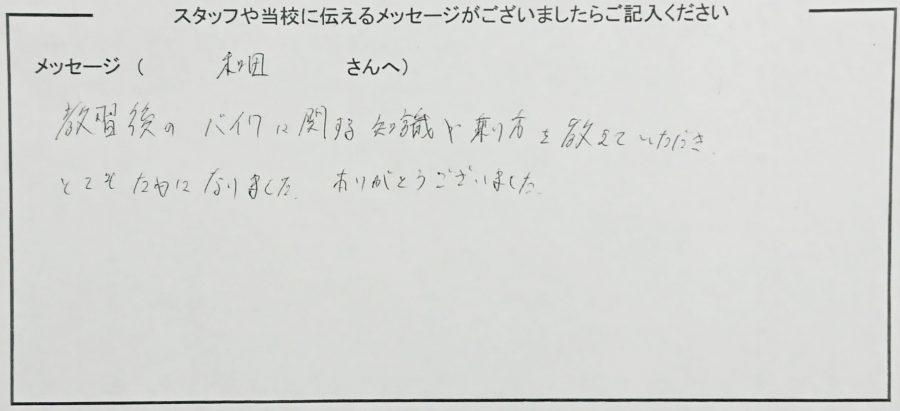 スタッフや当校に伝えるメッセージがございましたらご記入ください
メッセージ ( 和田 さんへ)
教習後のバイクに関する知識や乗り方を教えていただき、
とてもためになりました。ありがとうございました。